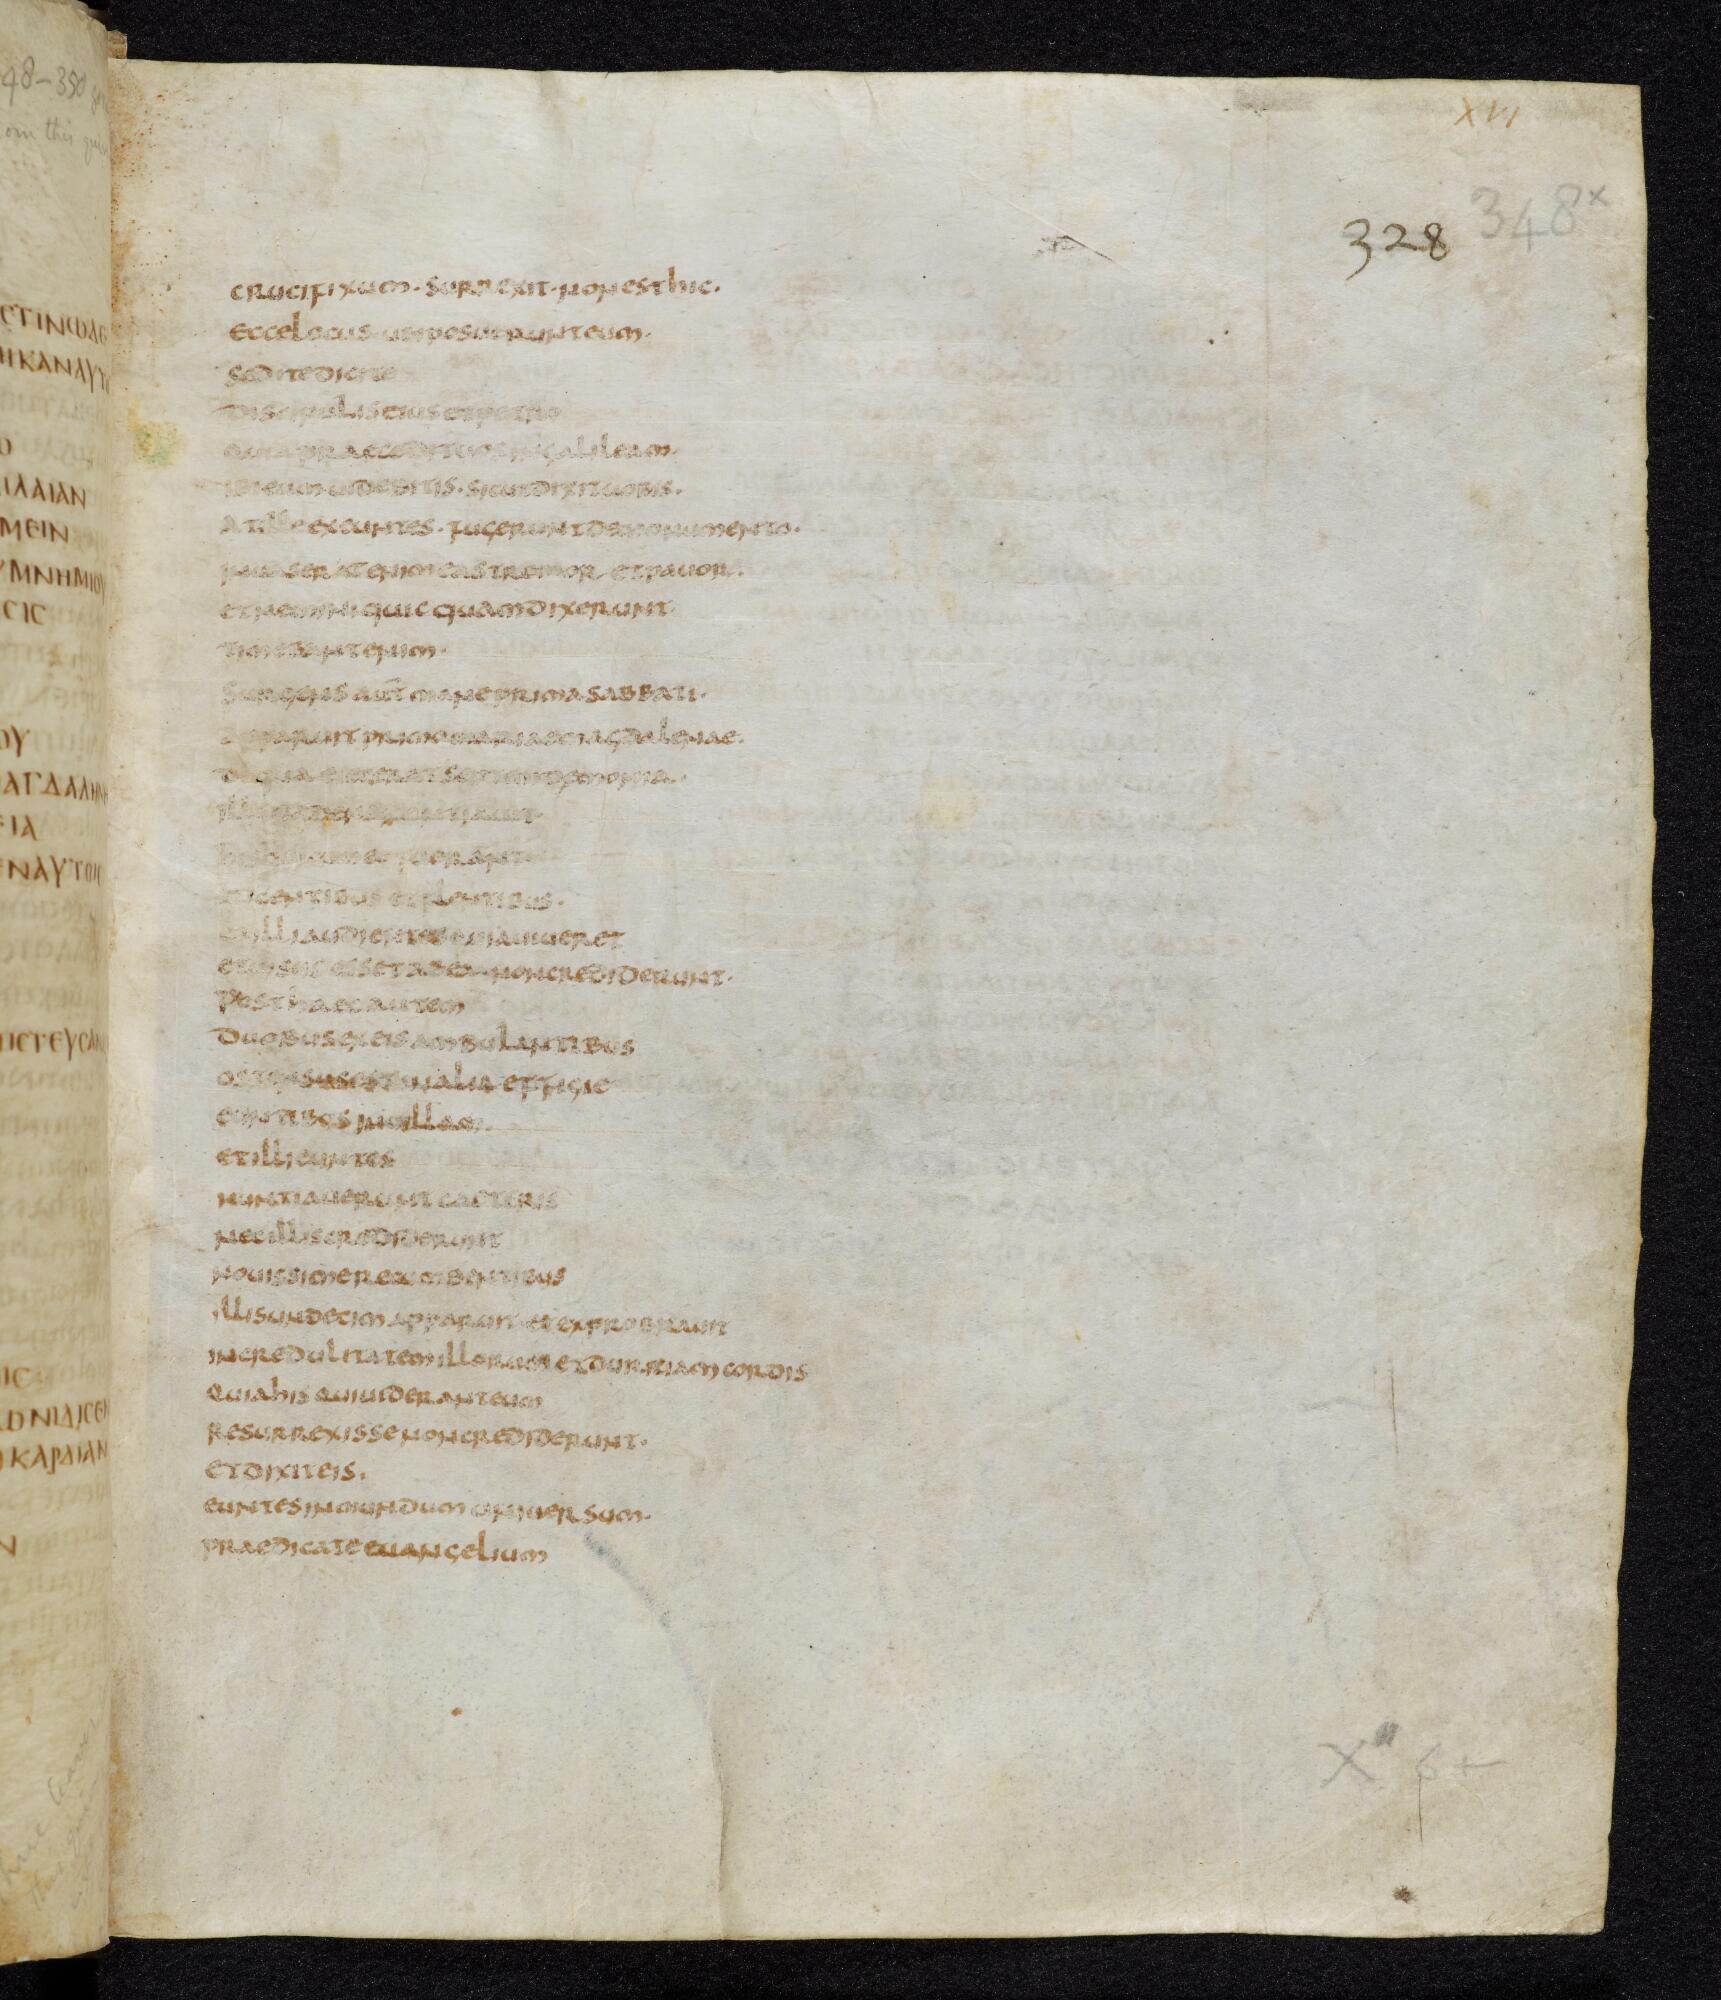 XVI
328 348x
crucifixum · surrexit · non est hic ·
ecce locus ubi posuerunt eum ·
sed ite dicite
discipulis eius et petro
quia praecedit uos in galileam ·
ibi eum uidebitis · sicut dixit uobis ·
at illae exeuntes · fugerunt de monumento ·
inuaserat enim eas tremor et pauor ·
et nemini quicquam dixerunt ·
timebant enim ·
surgens aut mane prima sabbati ·
apparuit primo mariae magdalenae ·
de qua eiecerat septem demonia ·
illa uadens nuntiauit ·
his qui cum eo fuerant
lugentibus et flentibus ·
et illi audientes quia uiueret
et uisus esset ab ea non crediderunt ·
post haec autem
duobus ex eis ambulantibus
ostensus est in alia effigie
euntibus in uillam ·
et illi euntes
nuntiauerunt caeteris
nec illis crediderunt
nouissime recumbentibus
illis undecim apparuit et exprobrauit
incredulitatem illorum et duritiam cordis
quia his qui uiderant eum
resurrexisse non crediderunt ·
et dixit eis ·
euntes in mundum uniuersum ·
praedicate euangelium